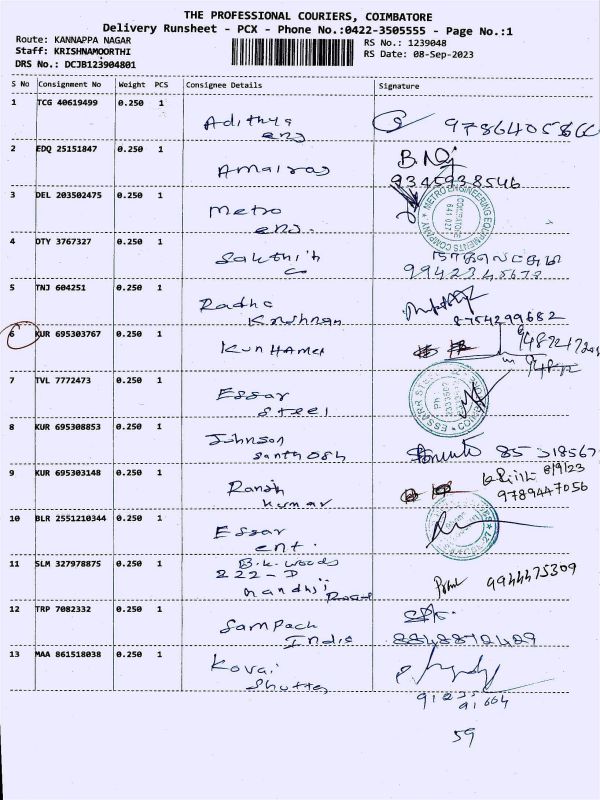 THE PROFESSIONAL COURIERS, COIMBATORE
Delivery Runsheet - PCX - Phone No.:0422-3505555 - Page No.:1
Route: KANNAPPA NAGAR
Staff: KRISHNAMOORTHI
DRS No.: DCJB123904801
RS No.: 1239048
RS Date: 08-Sep-2023
S No Consignment No Weight PCS Consignee Details Signature
1 TCG 40619499 0.250 1 Adithya
2 EDQ 25151847 0.250 1 Amalraj
9345938546
3 DEL 203502475 0.250 1 Metro
eng.
METRO ENGINEERING EQUIPMENTS COMPANY
COIMBATORE
641 027
4 OTY 3767327 0.250 1 Sakthi
5 TNJ 604251 0.250 1 Radha
Krishnan 8754299682
6 KUR 695303767 0.250 1
7 TVL 7772473 0.250 1 Essar
Steel
8 KUR 695308853 0.250 1 Johnson
Santhosh
9 KUR 695303148 0.250 1 8/9/23
Kumar 9789447056
10 BLR 2551210344 0.250 1 Essar
ent.
11 SLM 327978875 0.250 1 B.K. Woods
222-D
Gandhiji Road 9944475309
12 TRP 7082332 0.250 1 Sampack
India
13 MAA 861518038 0.250 1 Kovai
59